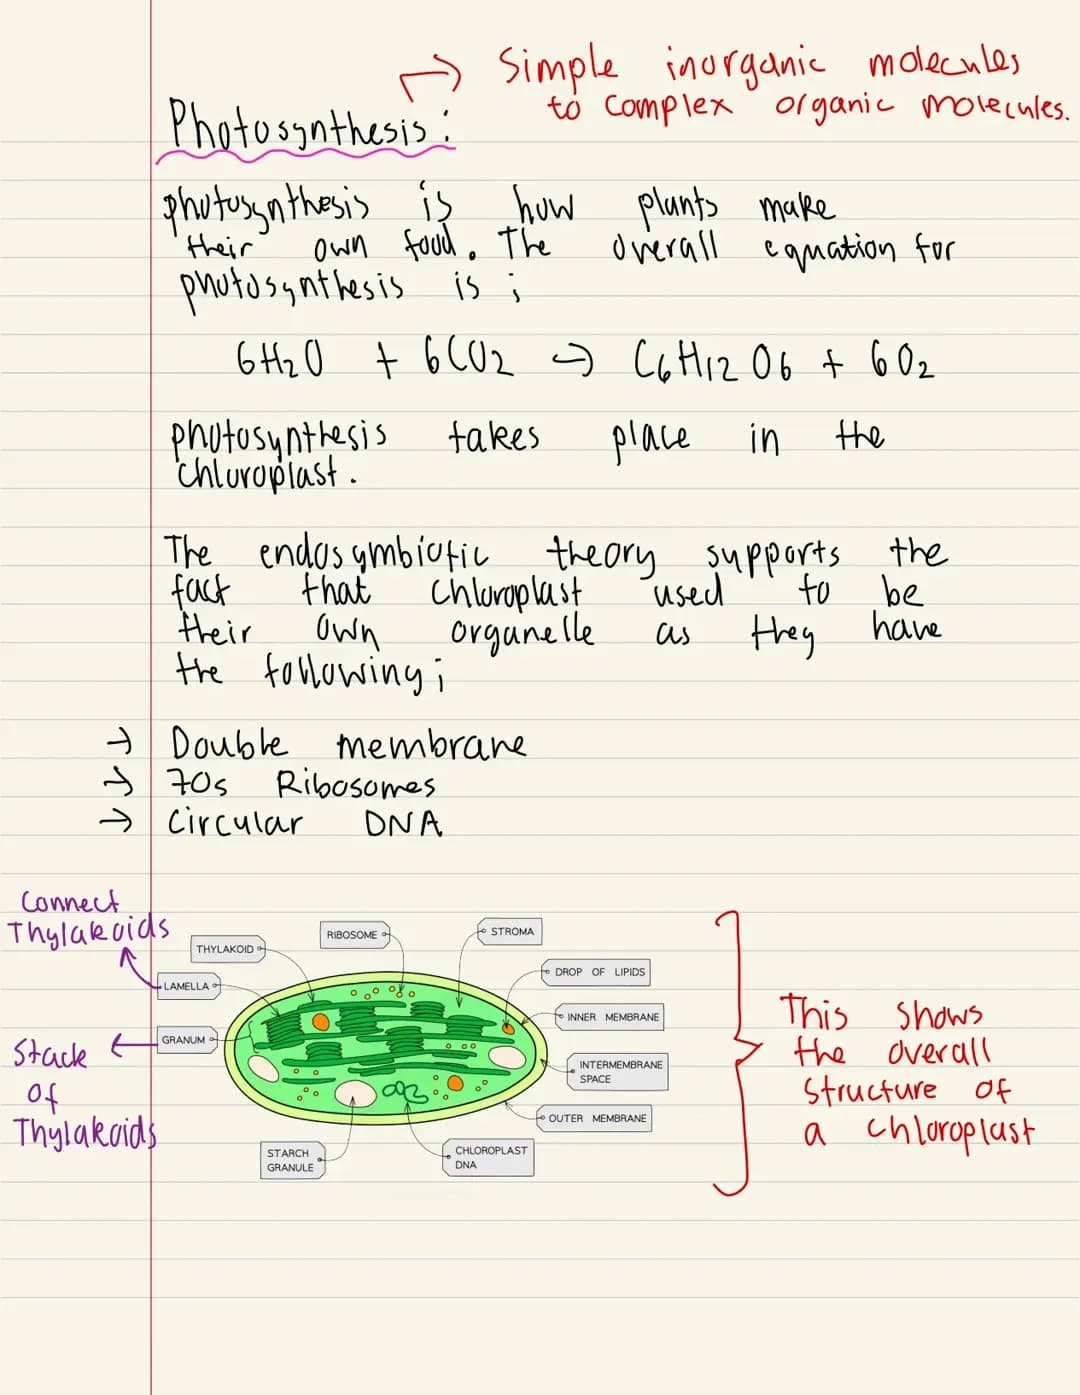 Simple inorganic molecules
to complex organic molecules.
Photosynthesis:
photosynthesis is how plants make
their own food. The overall equation for
photosynthesis is ;
6H2O + 6CO2 → C6H12O6 + 6O2
photosynthesis takes place in the
chloroplast.
The endosymbiotic theory supports the
fact that chloroplast used to be
their own organelle as they have
the following;
→ Double membrane
→ 70s Ribosomes
→ Circular DNA
Connect
Thylakoids
THYLAKOID
RIBOSOME
STROMA
LAMELLA
DROP OF LIPIDS
GRANUM
INNER MEMBRANE
Stack
of
Thylakoids
INTERMEMBRANE
SPACE
OUTER MEMBRANE
STARCH
GRANULE
CHLOROPLAST
DNA
This shows
the overall
structure of
a chloroplast